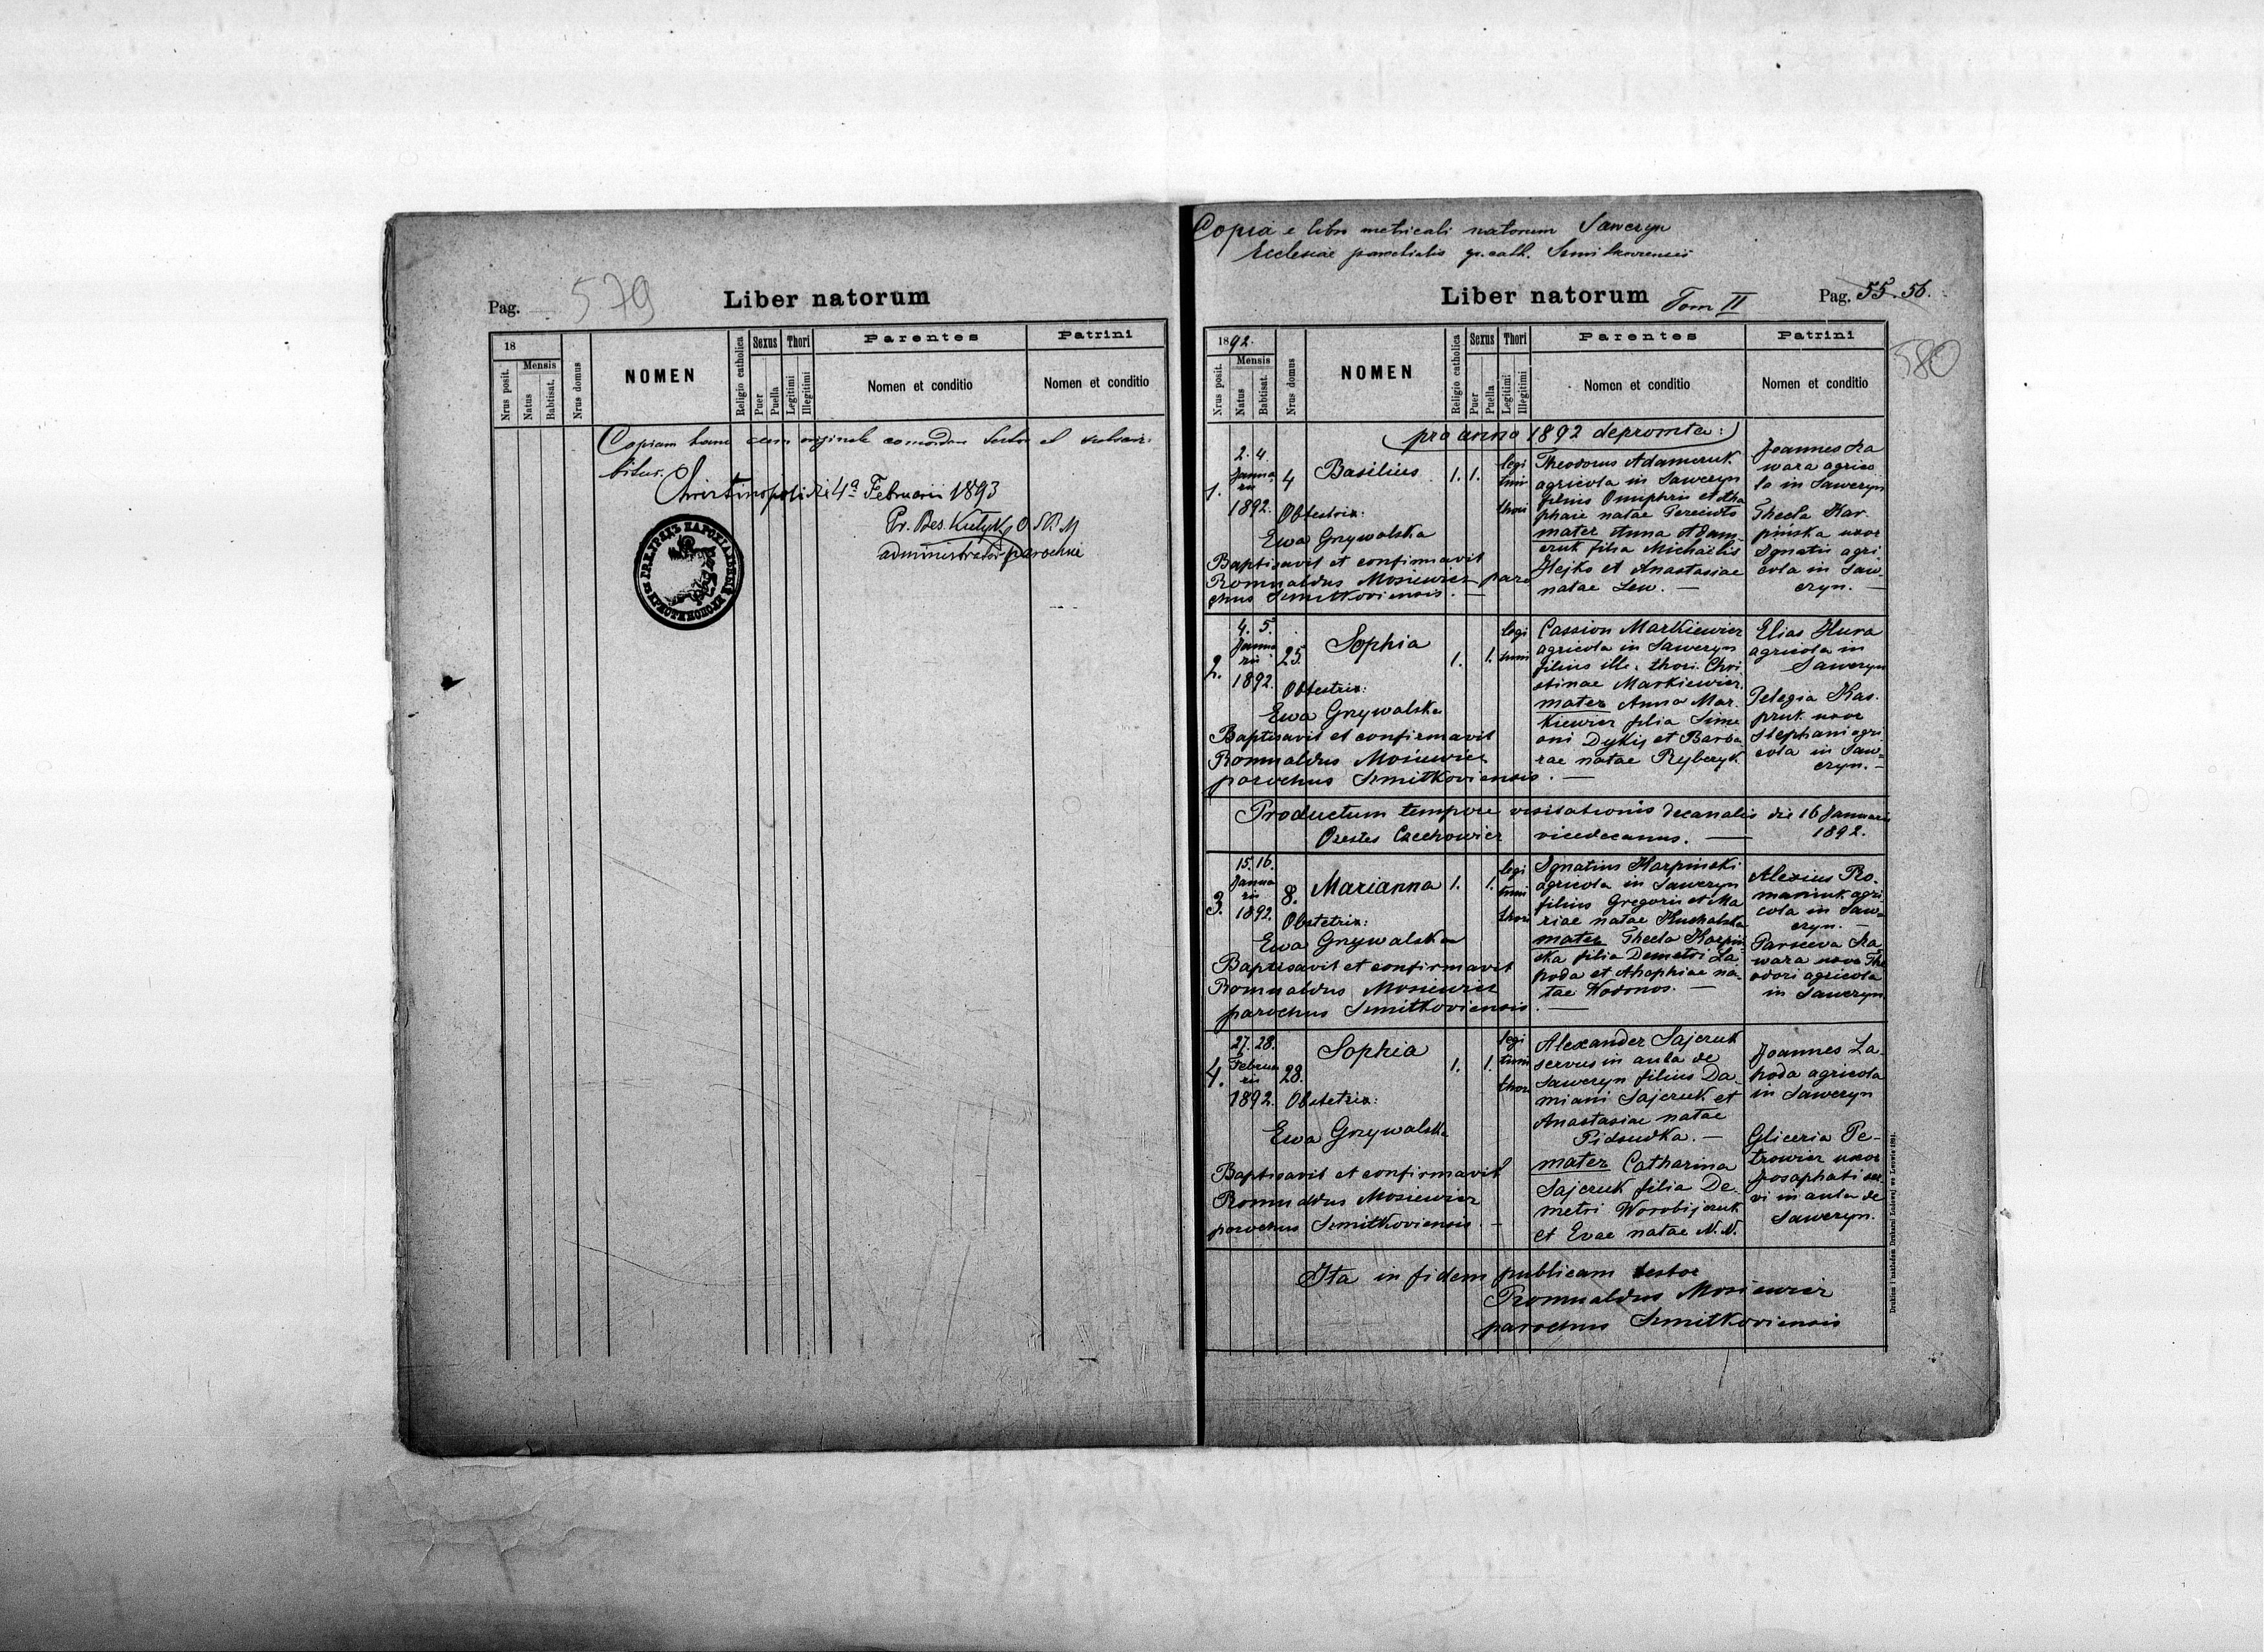 Pag. 579
Liber natorum
18
Mensis
Nrus posit.
Natus
Babtisat.
Nrus domus
NOMEN
Religio catholica
Sexus
Puer
Puella
Thori
Legitimi
Illegitimi
Parentes
Nomen et conditio
Patrini
Nomen et conditio
Copiam hanc cum originale
Christinopoli die 4a Februarii 1893
O.S.B.M
administrator parochiae
Copia e libro metricali natorum Saweryn
Ecclesiae parochialis gr. cath.
Liber natorum Tom II
Pag. 55. 56.
580
1892.
Mensis
Nrus posit.
Natus
Babtisat.
Nrus domus
NOMEN
Religio catholica
Sexus
Puer
Puella
Thori
Legitimi
Illegitimi
Parentes
Nomen et conditio
Patrini
Nomen et conditio
pro anno 1892 depromta:
1.
2. 4.
Janua
rii
1892.
4
Basilius
1. 1.
legi
timi
thori
Obstetrix:
Ewa Grzywalska
Baptisavit et confirmavit
Romualdus Mosiewicz paro
chus Szmitkoviensis. —
Theodorus Adamczuk
agricola in Saweryn
filius Onuphrii et Aha
phaie natae
mater Anna Adam-
czuk filia Michaelis
Hejko et Anastasiae
natae Lew. —
Joannes Ka
wara agrico
la in Saweryn
Thecla Kar
pinska uxor
Ignatii agri
cola in Saw
eryn. —
2.
4. 5.
Janua
rii
1892.
25.
Sophia
1. 1.
legi
timi
Obstetrix:
Ewa Grzywalska
Baptisavit et confirmavit
Romualdus Mosiewicz
parochus Szmitkoviensis. —
Cassion Markiewicz
agricola in Saweryn
filius ille. thori Chri
stinae Markiewicz.
mater Anna Mar
kiewicz filia Sime
oni Dykij et Barba
rae natae Rybczyk.
Elias Hura
agricola in
Saweryn
Pelegia Kas
pruk uxor
Stephani agri
cola in Saw
eryn. —
Productum tempore visitationis decanalis die 16 Januarii
Orestes Czechowicz vicedecanus. — 1892.
3.
15. 16.
Janua
rii
1892.
8.
Marianna
1. 1.
legi
timi
thori
Obstetrix:
Ewa Grzywalska
Baptisavit et confirmavit
Romualdus Mosiewicz
parochus Szmitkoviensis. —
Ignatius Karpinski
agricola in Saweryn
filius Gregorii et Ma
riae natae Kuchalska
mater Thecla Karpin
ska filia Demetri La
poda et Ahaphiae na
tae Wodonos. —
Alexius Ro
maniuk agri
cola in Saw
eryn. —
Parsceva Ka
wara uxor The
odori agricola
in Saweryn
4.
27. 28.
Februa
rii
1892.
28.
Sophia
1. 1.
legi
timi
thori
Obstetrix:
Ewa Grzywalska
Baptisavit et confirmavit
Romualdus Mosiewicz
parochus Szmitkoviensis. —
Alexander Sajczuk
servus in aula de
Saweryn filius Da
miani Sajczuk et
Anastasiae natae
Pidsudka. —
mater Catharina
Sajczuk filia De
metri Worobijczuk
et Evae natae N. N.
Joannes La
poda agricola
in Saweryn
Gliceria Pe-
trowicz uxor
Josaphati ser
vi in aula de
Saweryn.
Ita in fidem publicam testor
Romualdus Mosiewicz
parochus Szmitkoviensis